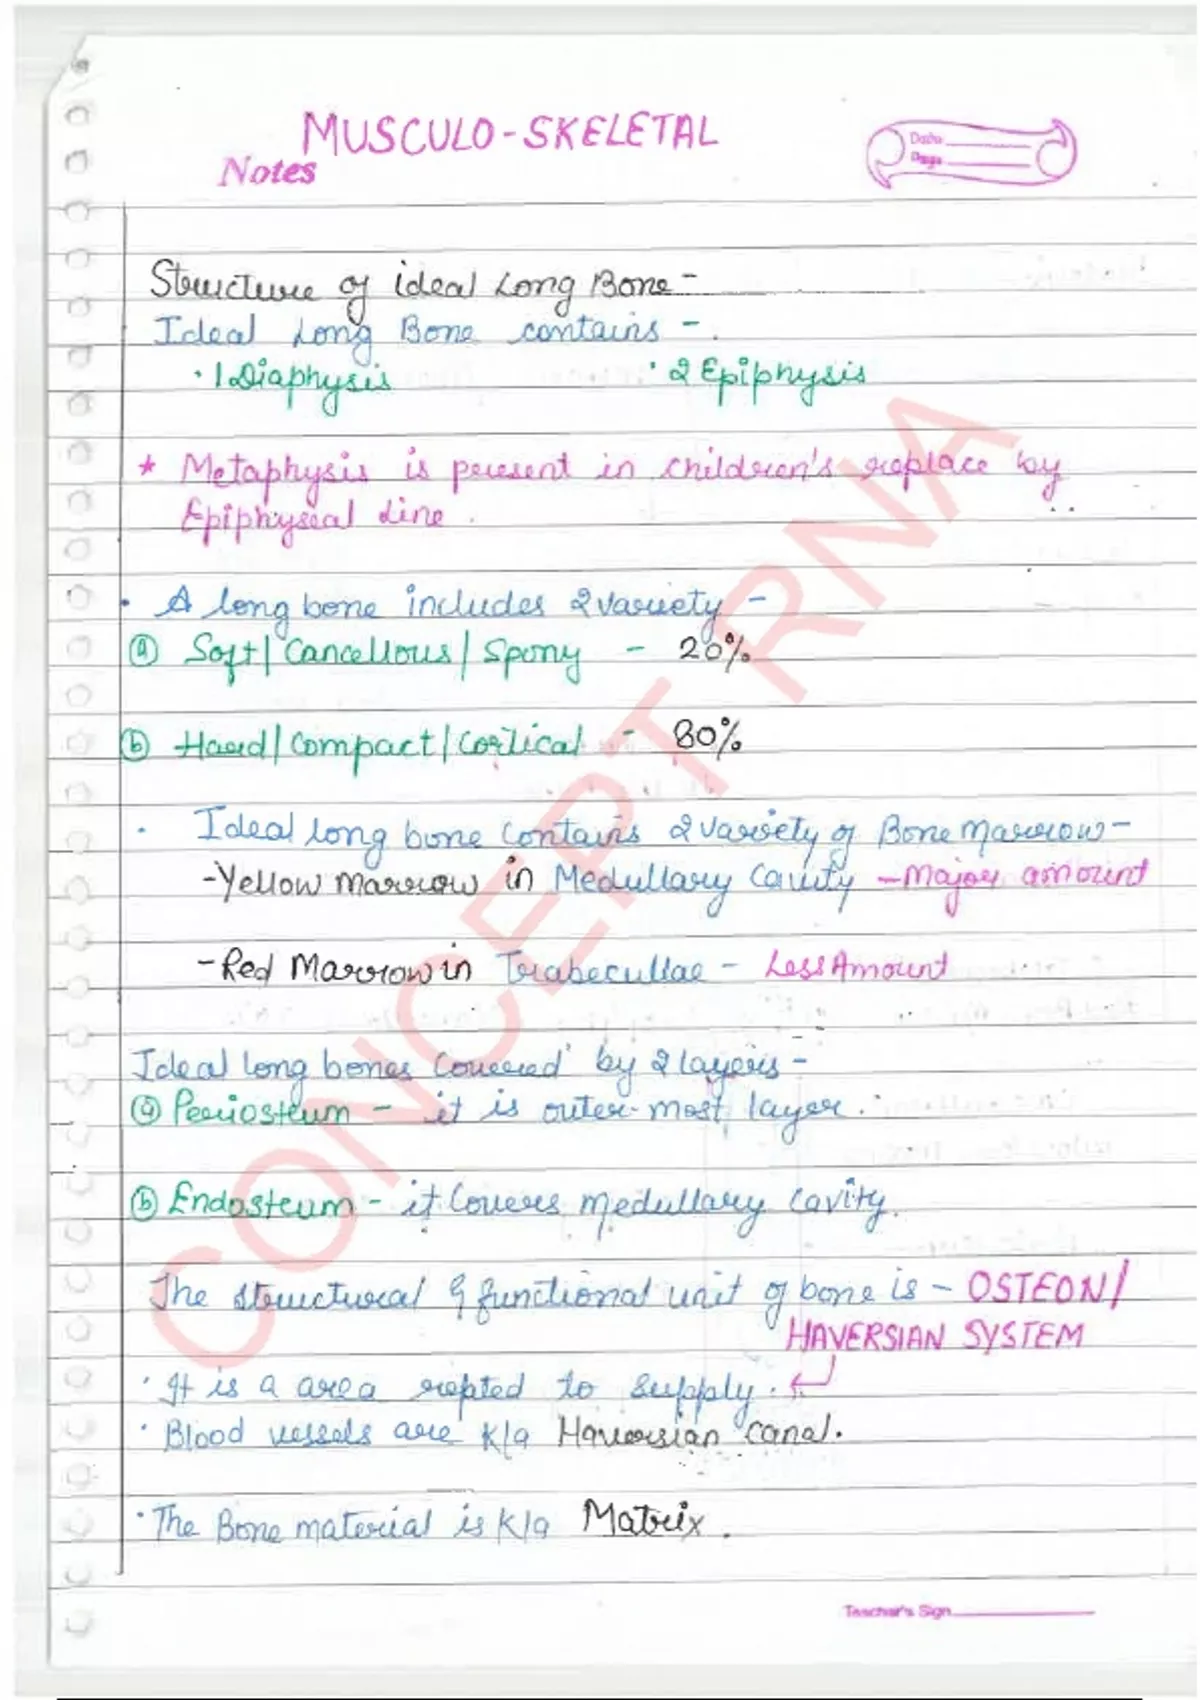 MUSCULO-SKELETAL
Notes
Date
Page
Structure of ideal Long Bone -
Ideal Long Bone contains -
· 1 Diaphysis · 2 Epiphysis
* Metaphysis is present in children's replace by
Epiphyseal Line.
· A long bone includes 2 variety -
(a) Soft/Cancellous/Spony - 20%
(b) Hard/Compact/Cortical - 80%
· Ideal long bone contains 2 variety of Bone Marrow -
- Yellow Marrow in Medullary Cavity - Major amount
- Red Marrow in Trabecullae - Less Amount
Ideal long bones covered by 2 layers -
(a) Periosteum - it is outer-most layer.
(b) Endosteum - it Covers medullary cavity.
The structural & functional unit of bone is - OSTEON/
HAVERSIAN SYSTEM
· It is a area to supply.
· Blood vessels are K/a Haversian canal.
· The Bone material is K/a Matrix.
Teacher's Sign
CONCEPT RNA